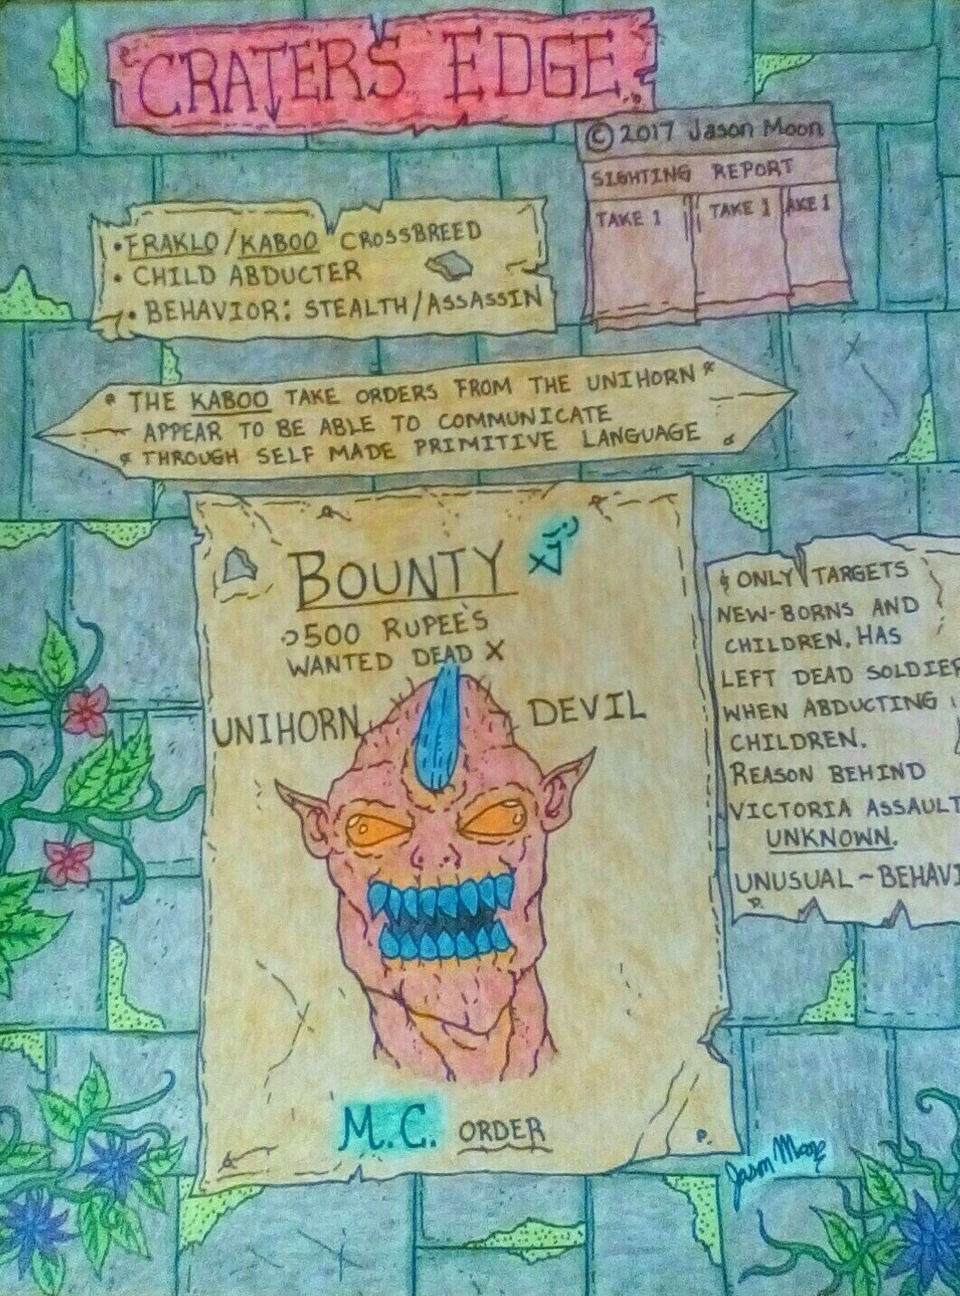 CRATERS EDGE
© 2017 Jason Moon
SIGHTING REPORT
TAKE 1 TAKE 1 AKE 1
• FRAKLO/KABOO CROSSBREED
• CHILD ABDUCTER
• BEHAVIOR: STEALTH/ASSASSIN
THE KABOO TAKE ORDERS FROM THE UNIHORN
APPEAR TO BE ABLE TO COMMUNICATE
THROUGH SELF MADE PRIMITIVE LANGUAGE
BOUNTY
500 RUPEE'S
WANTED DEAD X
UNIHORN DEVIL
M.C. ORDER
ONLY TARGETS
NEW-BORNS AND
CHILDREN. HAS
LEFT DEAD SOLDIER
WHEN ABDUCTING
CHILDREN.
REASON BEHIND
VICTORIA ASSAULT
UNKNOWN.
UNUSUAL ~ BEHAVI
Jason Moon